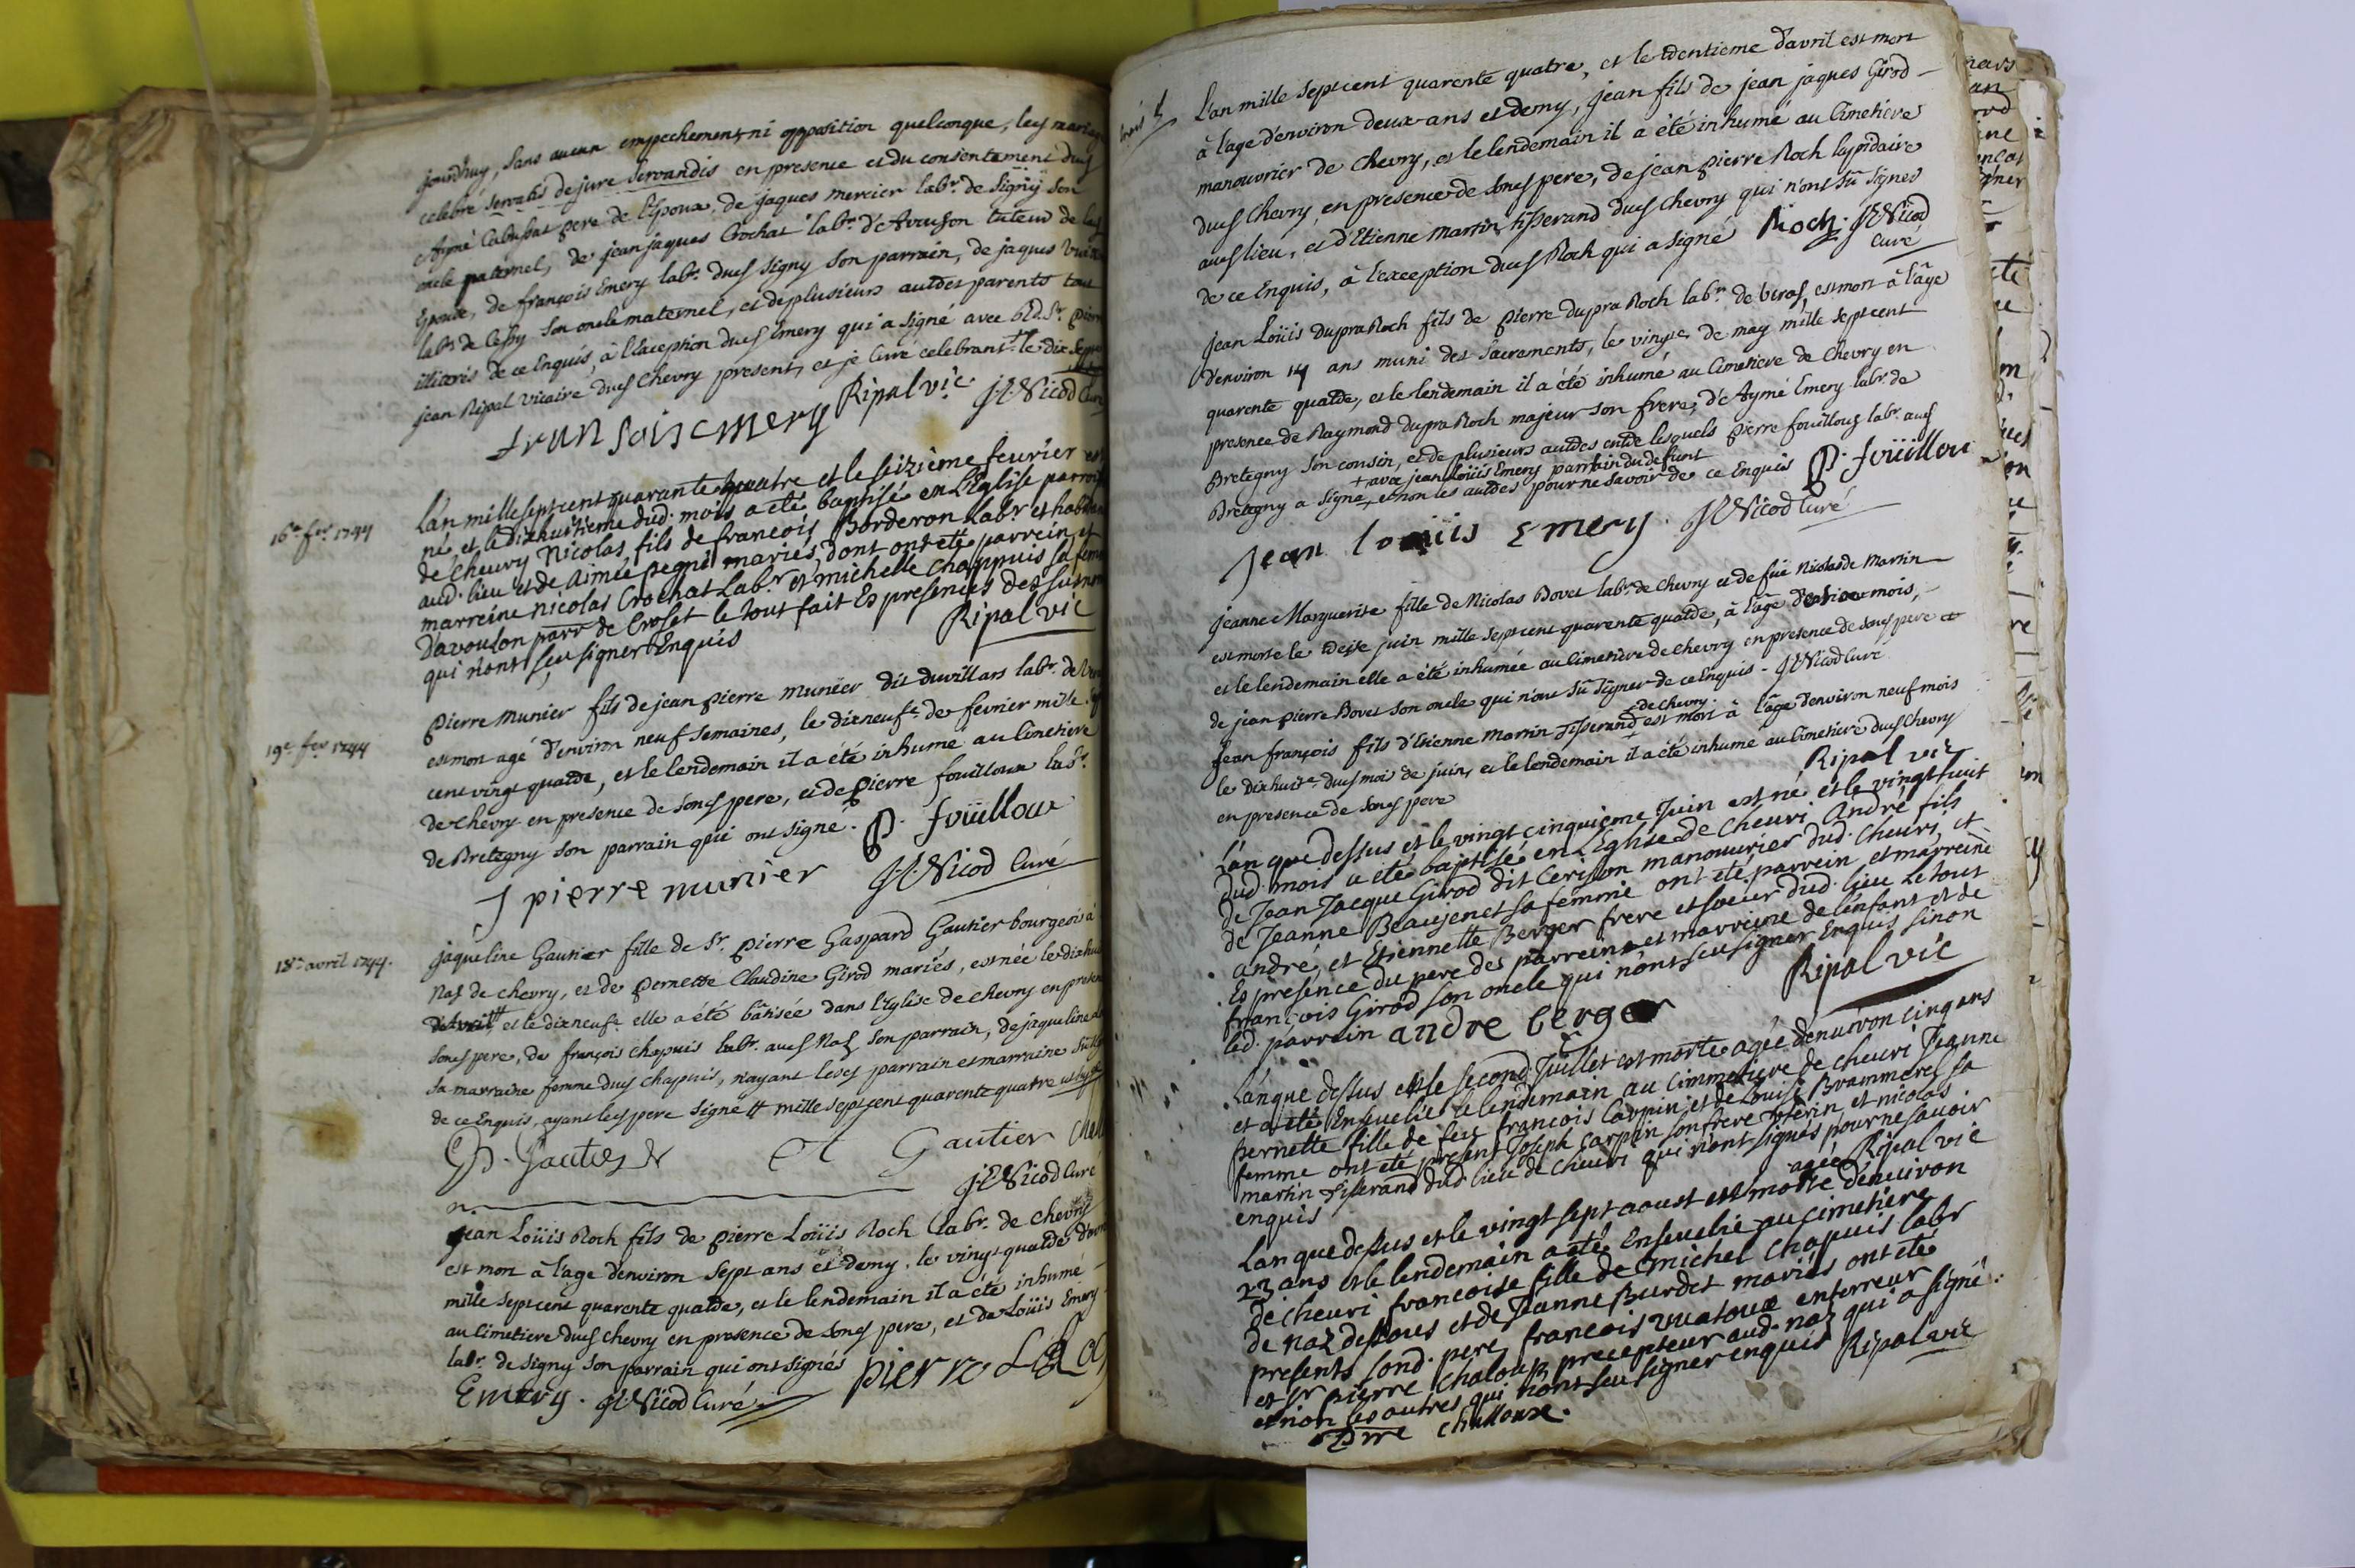 jourdhuy, sans aucun empechement, ni opposition quelconque, leq mariage
celebré servatis de jure servandis en presence et du consentement duq
Aymé pere de l'Epoux, de jaques mercier labr. de Signy son
oncle paternel, de jean jaques Crochat labr. d'Avouson tuteur de laq
Epouse, de françois Emery labr. duq signy son parrain, de jaques
labr. de Cessy son oncle maternel, et de plusieurs autdes parents tous
illiteris de ce Enquis, à l'exception duq Emery qui a signé avec Rd. Sr. pierre
jean Ripal vicaire duq Chevry present, et je Curé celebrant. le dix sept
fransois emery Ripal vic. JCNicod Curé
16e. fer. 1744
L'an mille sept cent quarante quatre et le seizième feurier est
né, et le dixhuitieme dud. mois a eté baptisé en L'Eglise parrois
de cheuvry Nicolas fils de francois Borderon Labr. et habitan
aud. lieu et de Aimée pegni mariés, dont ont eté parrein, et
marreine nicolas Crochat Labr. et michelle chappuis sa femme
D'avouson parr de Croset le tout fait Es presences des susnom
qui n'ont seu signer Enquis Ripal vic
19e. fer. 1744
pierre Munier fils de jean pierre munier dit duvillars labr. de
est mort agé d'environ neuf semaines, le dixneufe. de fevrier mille sept
cent vingt quatde, et le lendemain il a été inhumé au Cimetiere
de chevry en presence de sonq pere, et de pierre fouilloux labr.
de Bretegny son parrain qui ont signé. P. foüillou
J pierre munier JCNicod Curé
18e. avril 1744.
jaqueline Gautier fille de Sr. pierre Gaspard Gautier bourgeois à
Naz de chevry, et de pernette Claudine Girod mariés, est née le dixhuit
d'Avril # et le dixneufe. elle a été bâtisée dans l'Eglise de chevry en presence
sonq pere, de françois chapuis labr. auq Naz son parrain, de jaqueline
sa marraine femme duq chapuis, n'ayant lesq parrain et marraine sû
de ce Enquis, ayant leq pere signé # mille sept cent quarente quatre
P. Gautier et Gautier
JCNicod Curé
jean Loüis Roch fils de pierre Loüis Roch labr. de chevry
est mort à l'age d'environ sept ans et demy, le vingt quatde d'avril
mille sept cent quarente quatde, et le lendemain il a été inhumé
au Cimetiere duq chevry en presence de sonq pere, et de Loüis Emery
labr. de signy son parrain qui ont signés pierre
Emery. JCNicod Curé
L'an mille sept cent quarente quatre, et le tdentieme d'avril est mort
à l'age d'environ deux ans et demy, jean fils de jean jaques Girod
manouvrier de chevry, et le lendemain il a été inhumé au Cimetiere
duq Chevry en presence de sonq pere, de jean pierre Roch lapidaire
auq lieu, et d'Etienne Martin tisserand duq Chevry qui n'ont sû signer
de ce Enquis, à l'exception duq Roch qui a signé Roch. JCNicod
Curé
jean Loüis dupraRoch fils de pierre dupraRoch labr. de veraz, est mort à l'âge
d'environ 14 ans muni des sacrements, le vingte. de may mille sept cent
quarente quatde, et le lendemain il a été inhumé au Cimetiere de Chevry en
presence de Raymond dupraRoch majeur son frere, d'Aymé Emery labr. de
Bretegny son cousin, et de plusieurs autdes entde lesquels pierre fouilloux labr. auq
+ avec jean Loüis Emery parrain du defunt
Bretegny a signé + et non les autdes pour ne savoir de ce Enquis P. foüillou
jean loüis Emery. JCNicod Curé
jeanne Marguerite fille de Nicolas Bovet labr. de chevry et de füe Nicolarde Martin
est morte le tdeize juin mille sept cent quarente quatde, à l'âge mois,
et le lendemain elle a été inhumée au Cimetiere de chevry en presence de sonq pere et
de jean pierre Bovet son oncle qui n'ont sû signer de ce Enquis. JCNicod Curé
+ de chevry
jean françois fils d'Etienne Martin tisserand + est mort à l'âge d'environ neuf mois
le dixhuite. duq mois de juin, et le lendemain il a été inhumé au Cimetiere duq Chevry
en presence de sonq pere Ripal vic
L'an que dessus et le vingt cinquieme Juin est né et le vingt huit
Dud. mois a eté baptisé en L'Eglise de Cheuri André fils
de Jean Jacque Girod dit Cerisson manouurier dud. Cheuri, et
de Jeanne Beaujenet sa femme ont eté parrein et marreine
André, et Etiennette Berger frere et soeur dud. lieu Le tout
Es presence du pere des parrein et marreine de l'enfant et de
François Girod son oncle qui n'ont seu signer Enquis sinon
led. parrein andre berger Ripal vic
L'an que dessus et le second Juillet est morte agée denuiron cinq ans
et a eté Enseuelie le lendemain au cimmetiere de cheuri Jeanne
pernette fille de feu francois Carpin, et de Louise Brammerel sa
femme ont eté present Joseph Carpin son frere Vterin, et nicolas
martin tisserand dud. lieu de Cheuri qui n'ont signés pour ne sauoir
enquis Ripal vic
L'an que dessus et le vingt sept aoust est morte agée denuiron
23 ans et le lendemain a eté Enseuelie au cimetiere
de cheuri francoise fille de michel chapuis labr
de naz dessous et de Jeanne Burdet mariés ont eté
presents sond. pere, francois vuatoux enterreur
et Sr pierre Chaloup precepteur aud. naz qui a signé
et non les autres qui n'ont seu signer enquis Ripal vic
Pirre challoux.